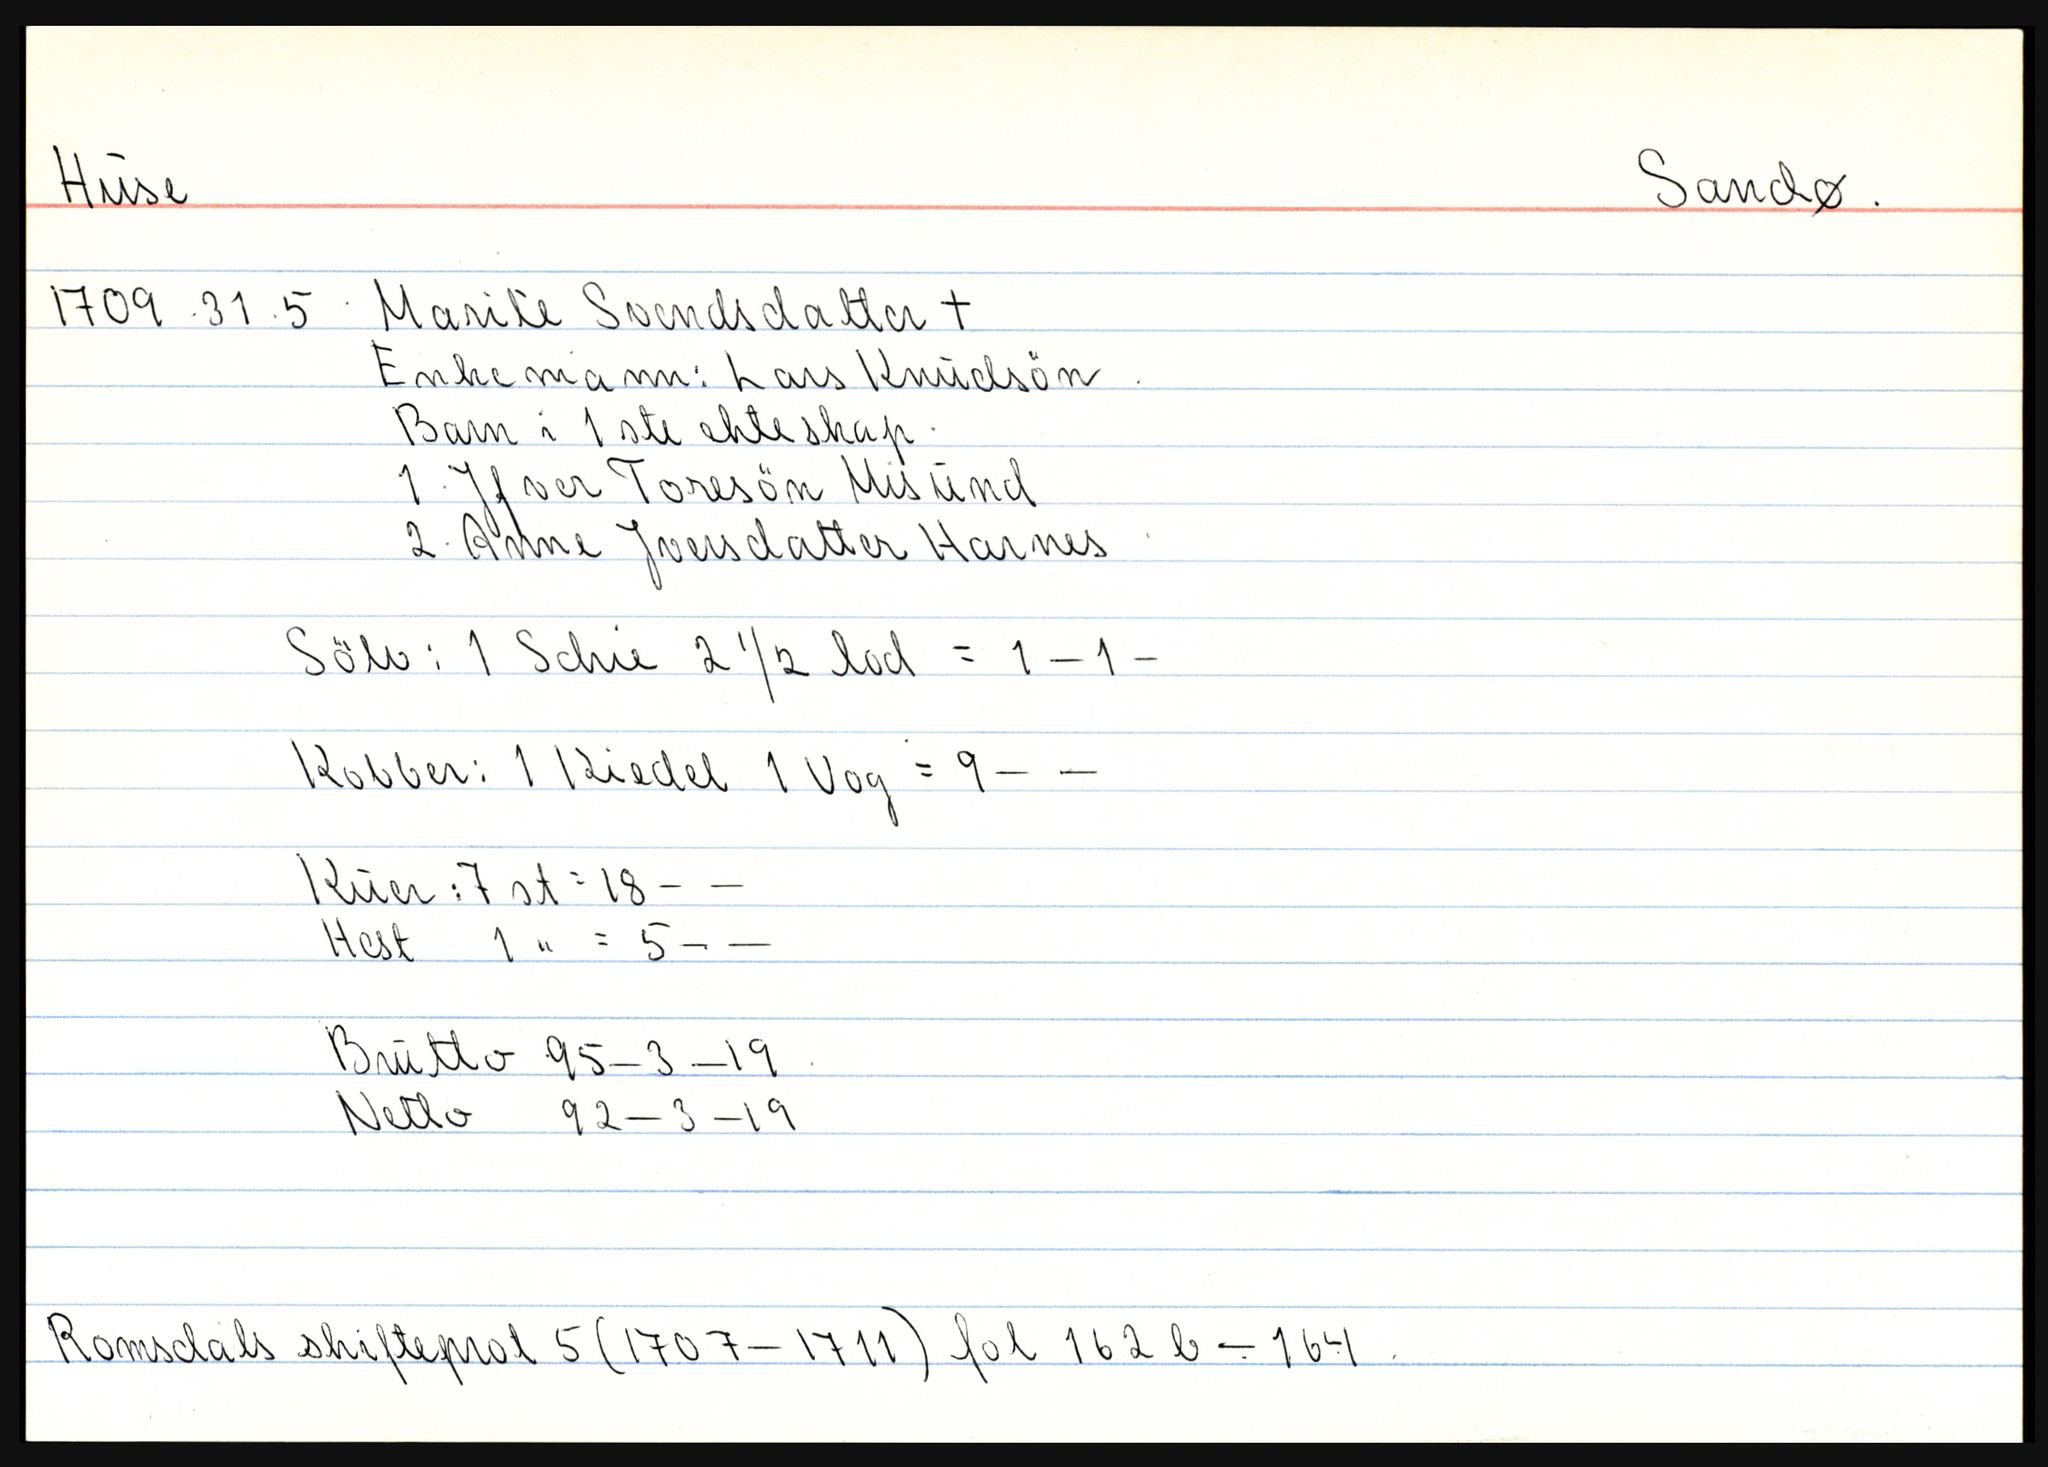 Hüse Sandø.
1709.31.5. Marite Svendsdatter +
Enkemann: Lars Knüdsön.
Barn i 1ste ekteskap.
1. Jfver Toresön Misünd
2. Anne Jversdatter Harnes
Sölv: 1 Schie 2 1/2 lod = 1 - 1 -
Kobber: 1 Kiedel 1 Vog = 9 - -
Küer: 7 st = 18 - -
Hest 1 " = 5 - -
Brütto 95 - 3 - 19.
Netto 92 - 3 - 19
Romsdals skifteprot 5 (1707 - 1711) fol 162 b - 164.